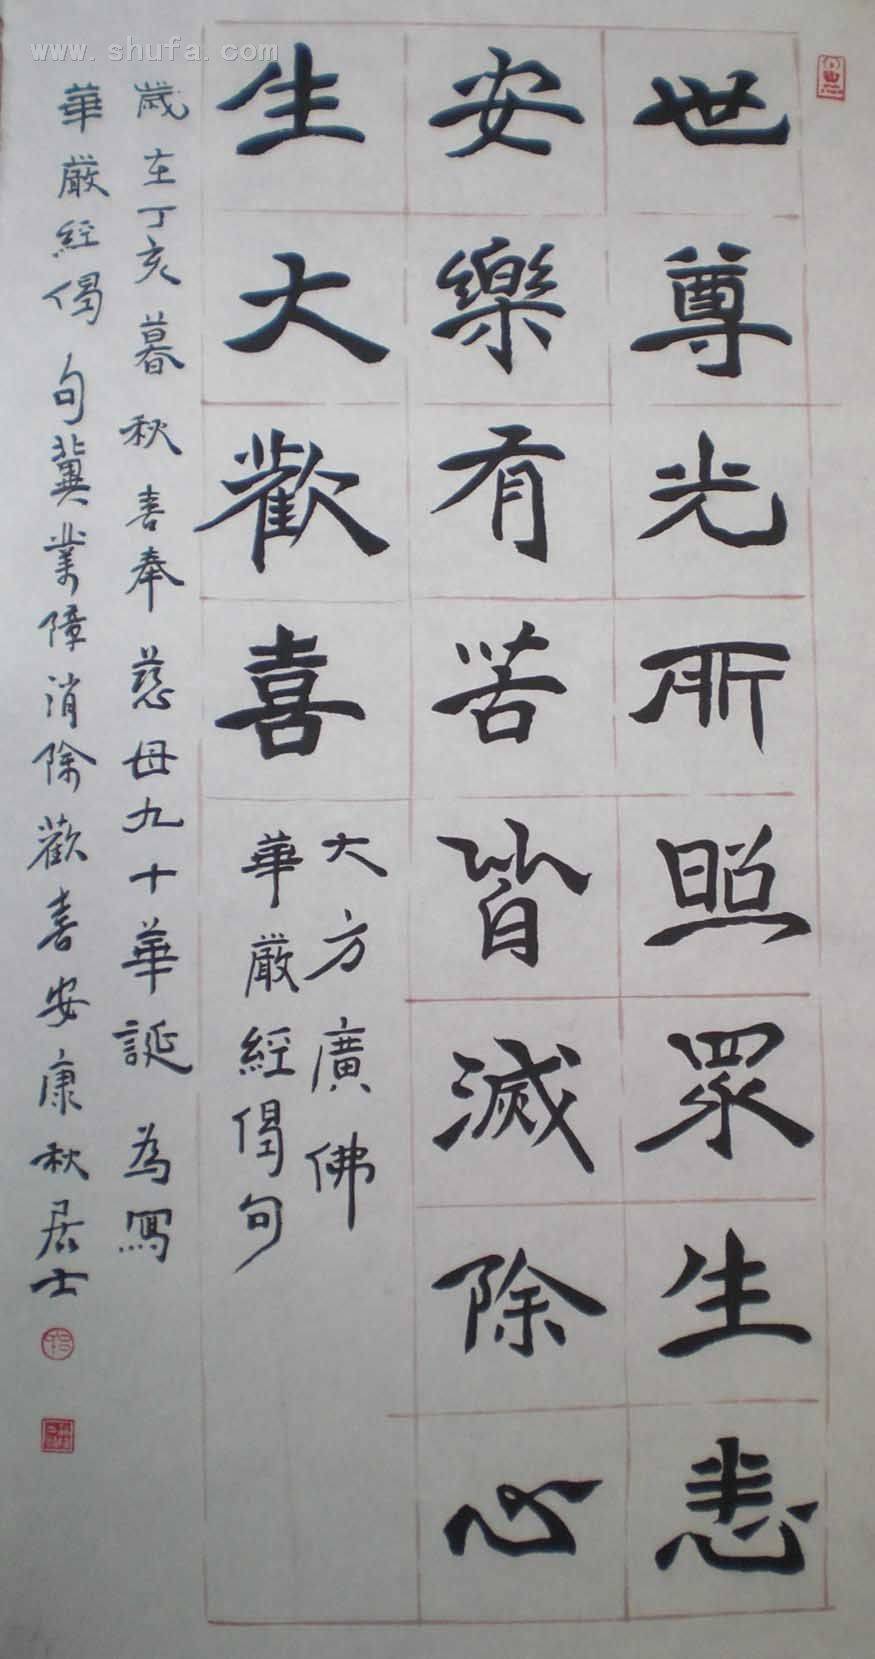 世尊光所照眾生悉
安樂有苦皆滅除心
生大歡喜
大方廣佛
華嚴經偈句
歲在丁亥暮秋喜奉慈母九十華誕為寫
華嚴經偈句冀業障消除歡喜安康秋居士
www.shufa.com